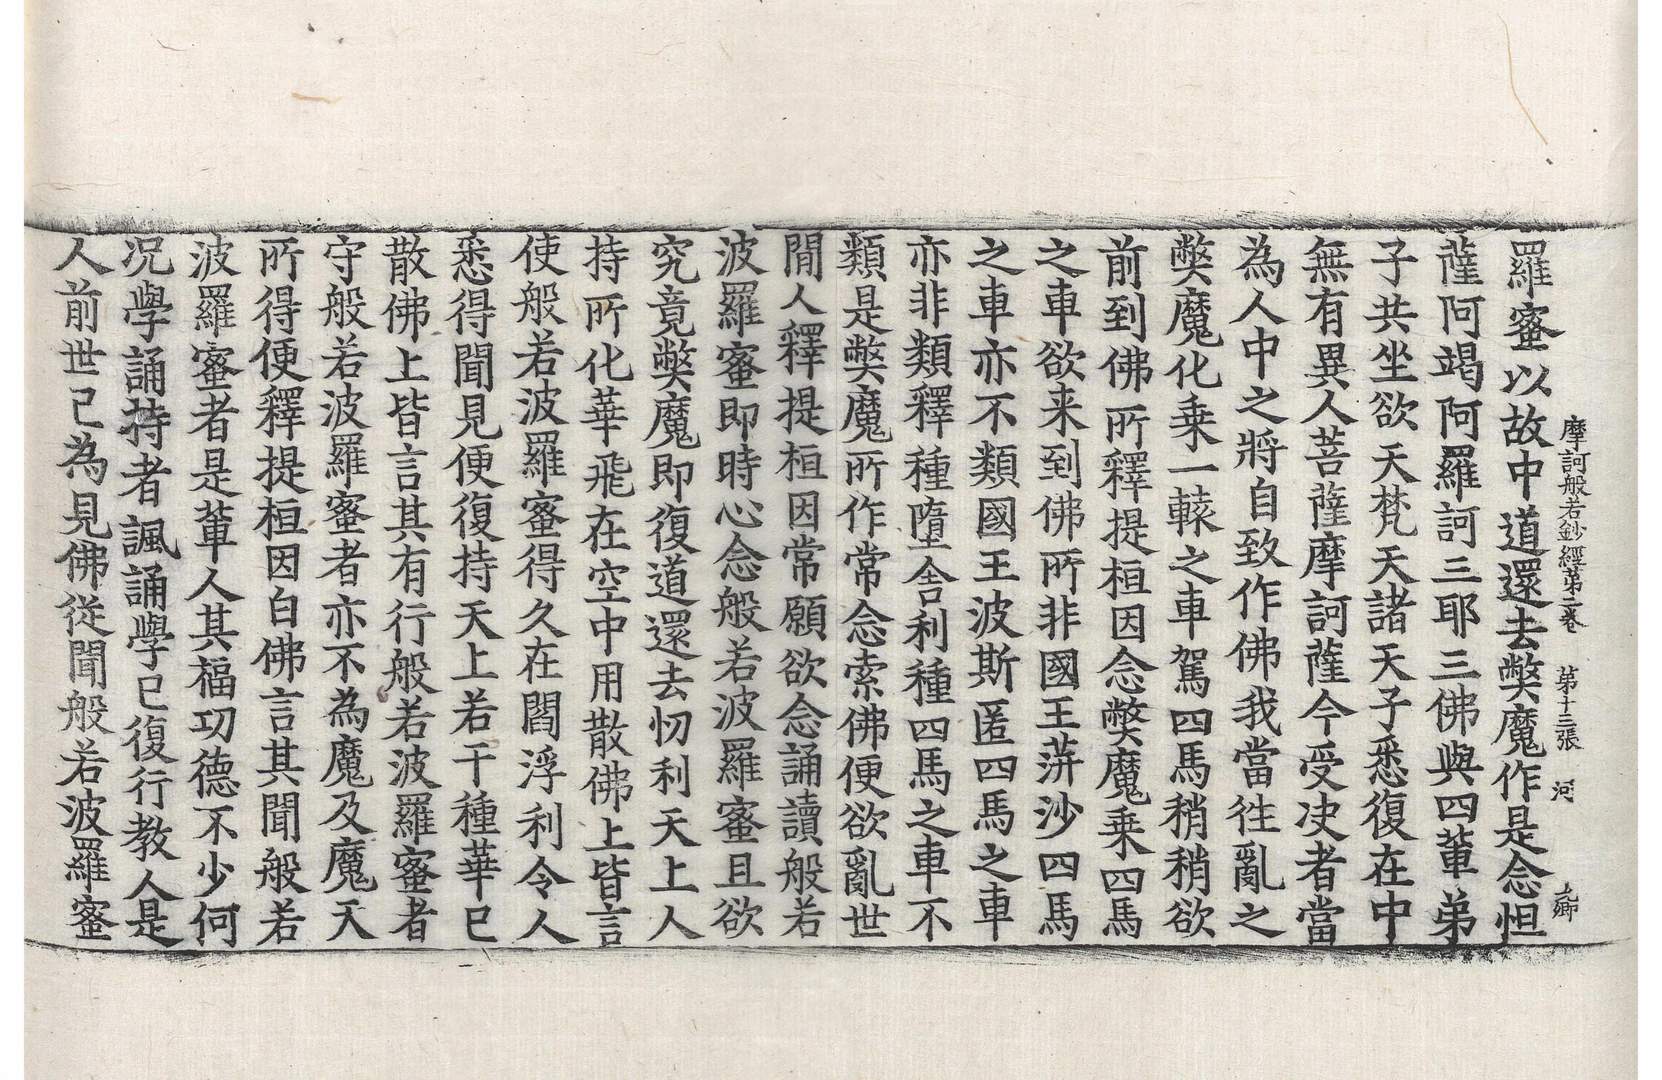 摩訶般若鈔經第二卷 第十三張 河
羅蜜以故中道還去弊魔作是念怛
薩阿竭阿羅訶三耶三佛與四輩弟
子共坐欲天梵天諸天子悉復在中
無有異人菩薩摩訶薩今受决者當
為人中之將自致作佛我當往亂之
弊魔化乗一轅之車駕四馬稍稍欲
前到佛所釋提桓因念弊魔乗四馬
之車欲来到佛所非國王蓱沙四馬
之車亦不類國王波斯匿四馬之車
亦非類釋種墮舍利種四馬之車不
類是弊魔所作常念索佛便欲亂世
閒人釋提桓因常願欲念誦讀般若
波羅蜜即時心念般若波羅蜜且欲
究竟弊魔即復道還去忉利天上人
持所化華飛在空中用散佛上皆言
使般若波羅蜜得久在閻浮利令人
悉得聞見便復持天上若干種華已
散佛上皆言其有行般若波羅蜜者
守般若波羅蜜者亦不為魔及魔天
所得便釋提桓因白佛言其聞般若
波羅蜜者是輩人其福㓛德不少何
况學誦持者諷誦學已復行教人是
人前世已為見佛從聞般若波羅蜜